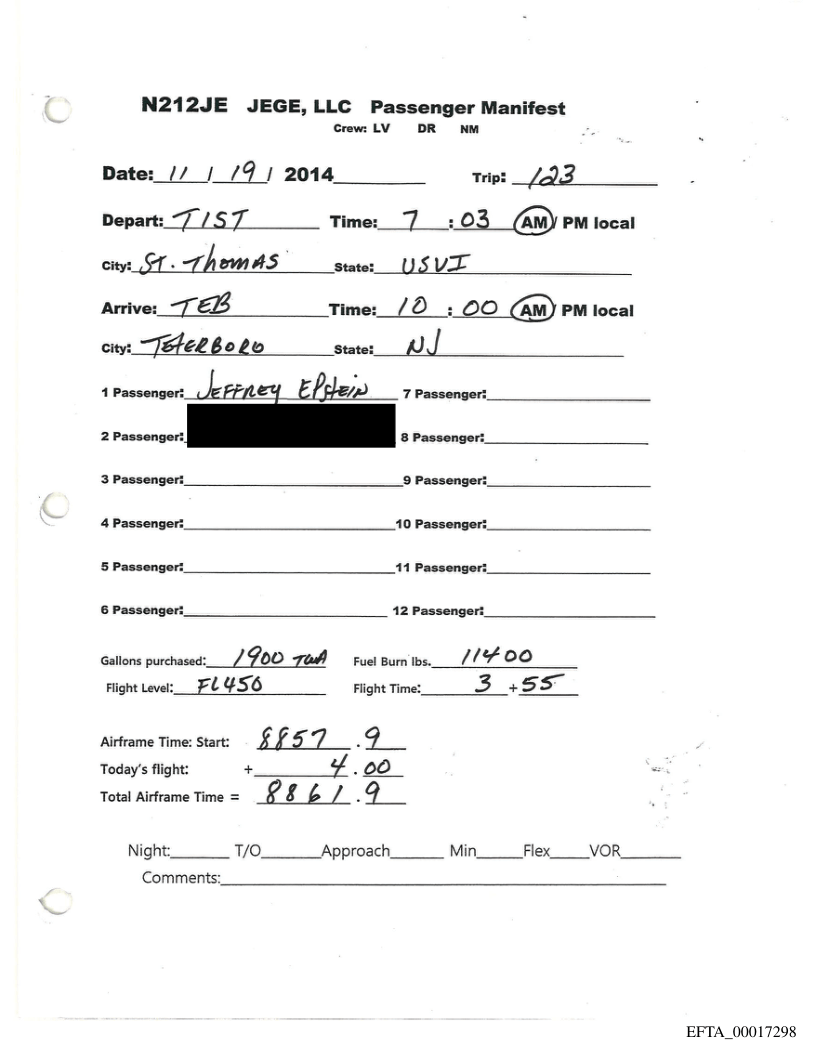 N212JE JEGE, LLC Passenger Manifest
Crew: LV DR NM
Date: 11 / 19 / 2014 Trip: 123
Depart: TIST Time: 7 : 03 AM/ PM local
City: ST. THOMAS State: USVI
Arrive: TEB Time: 10 : 00 AM/ PM local
City: TETERBORO State: NJ
1 Passenger: JEFFREY EPSTEIN 7 Passenger:
2 Passenger: 8 Passenger:
3 Passenger: 9 Passenger:
4 Passenger: 10 Passenger:
5 Passenger: 11 Passenger:
6 Passenger: 12 Passenger:
Gallons purchased: 1900 TWA Fuel Burn lbs. 11400
Flight Level: FL450 Flight Time: 3 + 55
Airframe Time: Start: 8857 .9
Today's flight: + 4 . 00
Total Airframe Time = 8861 .9
Night: T/O Approach Min Flex VOR
Comments:
EFTA_00017298